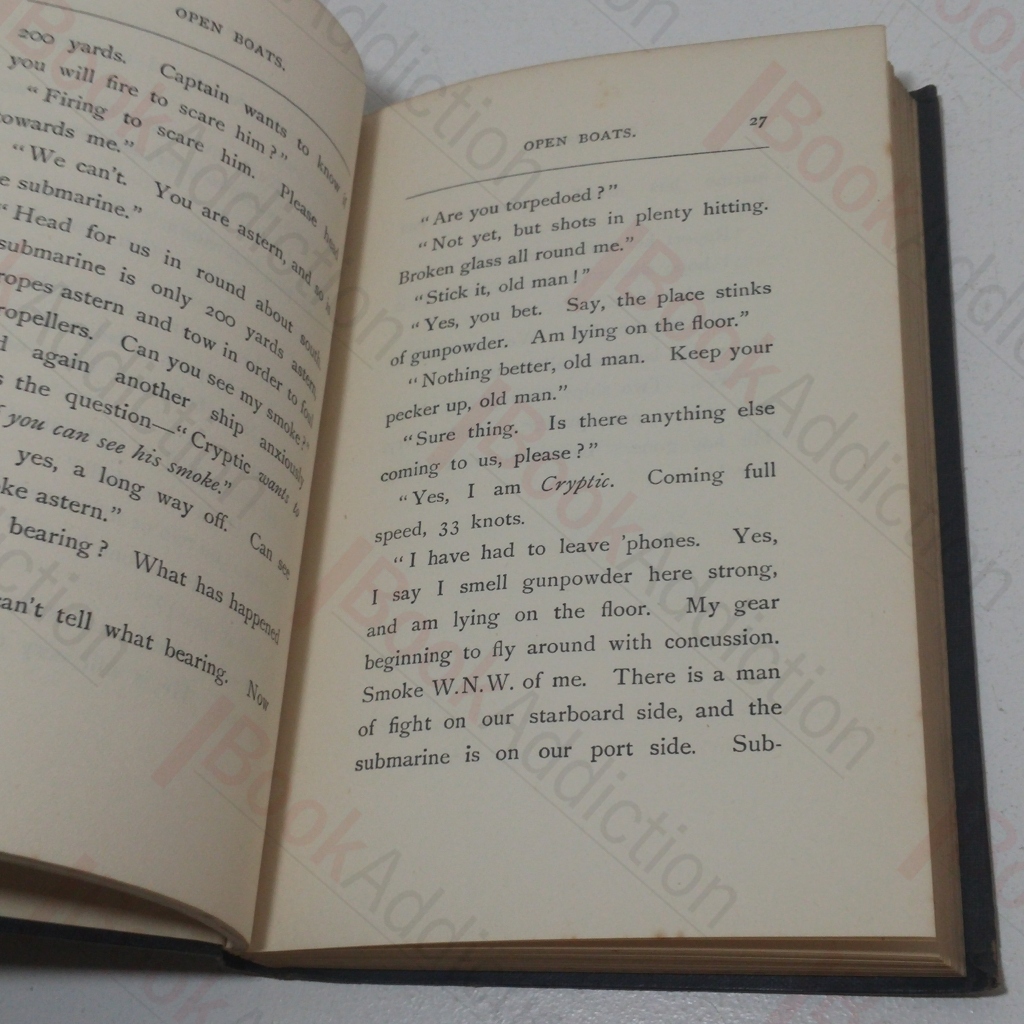 OPEN BOATS.
200 yards. Captain wants to know if
you will fire to scare him?"
"Firing to scare him. Please head
towards me."
"We can't. You are astern, and so is
e submarine."
"Head for us in round about south
submarine is only 200 yards astern,
ropes astern and tow in order to foul
ropellers. Can you see my smoke?"
d again another ship anxiously
s the question—"Cryptic wants to
f you can see his smoke."
yes, a long way off. Can see
ke astern."
bearing? What has happened
an't tell what bearing. Now
OPEN BOATS. 27
"Are you torpedoed?"
"Not yet, but shots in plenty hitting.
Broken glass all round me."
"Stick it, old man!"
"Yes, you bet. Say, the place stinks
of gunpowder. Am lying on the floor."
"Nothing better, old man. Keep your
pecker up, old man."
"Sure thing. Is there anything else
coming to us, please?"
"Yes, I am Cryptic. Coming full
speed, 33 knots.
"I have had to leave 'phones. Yes,
I say I smell gunpowder here strong,
and am lying on the floor. My gear
beginning to fly around with concussion.
Smoke W.N.W. of me. There is a man
of fight on our starboard side, and the
submarine is on our port side. Sub-
BookAddiction